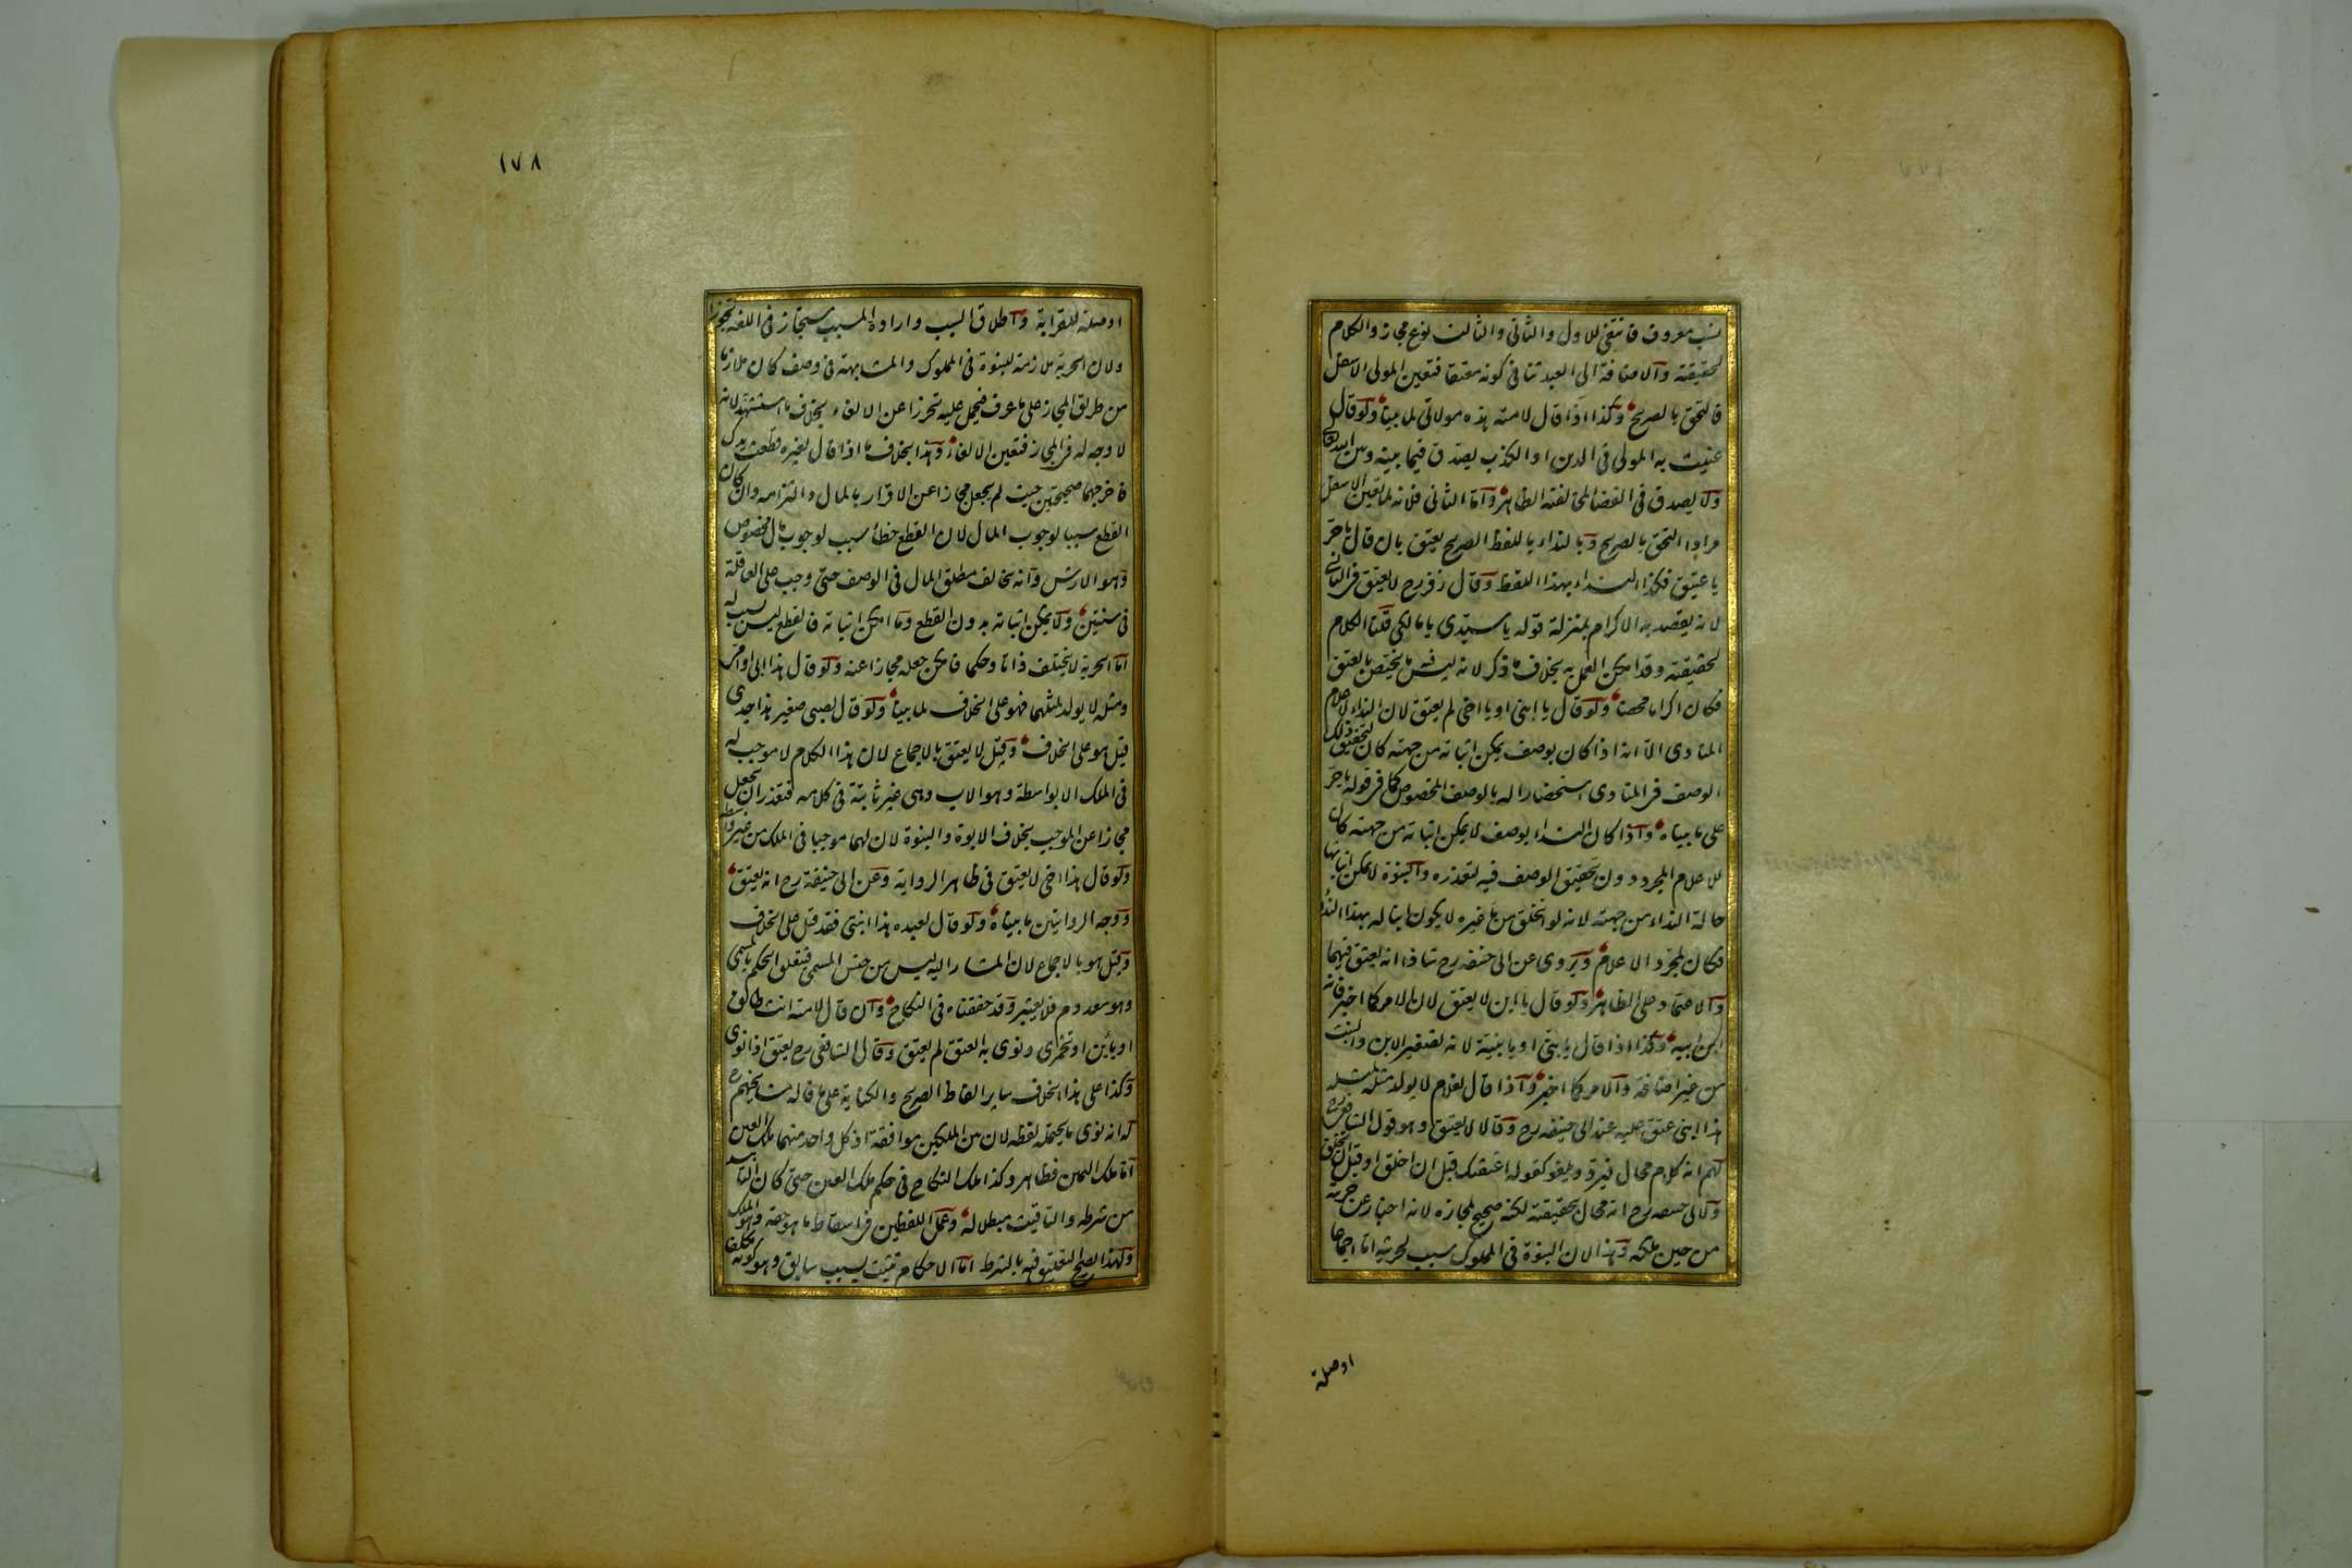 نسب معروف فانتفى للاول والثانى والثالث نوع مجاز والكلام
لحقيقته والاضافة الى العبد تنافى كونه معتقا فتعين المولى الاسفل
فالتحق بالصريح وكذا اذا قال لامته هذه مولاتى لما بينا ولو قال
عنيت به المولى فى الدين او الكذب يصدق فيما بينه وبين الله تعالى
ولا يصدق فى القضا لمخالفته الظاهر واما الثانى فلانه لما تعين الاسفل
مرادا التحق بالصريح وبالنداء باللفظ الصريح يعتق بان قال يا حر
يا عتيق فكذا النداء بهذا اللفظ وقال زفر رح لا يعتق فى الثانى
لانه يقصد به الاكرام بمنزلة قوله يا سيدى يا مالكى قلنا الكلام
لحقيقته وقد امكن العمل به بخلاف ما ذكر لانه ليس فيه ما يختص بالعتق
فكان اكراما محضا ولو قال يا ابنى او يا اخى لم يعتق لان النداء لاعلام
المنادى الا انه اذا كان بوصف يمكن اثباته من جهته كان لتحقيق ذلك
الوصف فى المنادى استحضارا له بالوصف المخصوص كما فى قوله يا حر
على ما بيناه واذا كان النداء بوصف لا يمكن اثباته من جهته كان
للاعلام المجرد دون تحقيق الوصف فيه لتعذره والبنوة لا يمكن اثباتها
حالة النداء من جهته لانه لو انخلق من ماء غيره لا يكون ابنا له بهذا النداء
فكان لمجرد الاعلام ويروى عن ابى حنيفه رح شاذا انه يعتق فيهما
والاعتماد على الظاهر ولو قال يا ابن لا يعتق لان الامر كما اخبر فانه
ابن ابيه وكذا اذا قال يا بنى او يا بنية لانه تصغير الابن والبنت
من غير اضافة والامر كما اخبر واذا قال لغلام لا يولد مثله لمثله
هذا ابنى عتق عليه عند ابى حنيفه رح وقالا لا يعتق وهو قول الشافعى رح
لهم انه كلام محال فيرد ويلغو كقوله اعتقتك قبل ان اخلق او قبل ان تخلق
ولابى حنيفه رح انه محال بحقيقته لكنه صحيح لمجازه لانه اخبار عن حريته
من حين ملكه وهذا لان البنوة فى المملوك سبب لحريته اما اجماعا
اوصلة
١٧٨
اوصلة للقرابة واطلاق السبب وارادة المسبب مستجاز فى اللغة تجوزا
ولان الحرية ملازمة للبنوة فى المملوك والمشابهة فى وصف كان ملازما
من طريق المجاز على ما عرف فيحمل عليه تحرزا عن الالغاء بخلاف ما استشهد لانه
لا وجه له فى المجاز فتعين الالغاء وهذا بخلاف ما اذا قال لغيره قطعت يدك
فاخرجهما صحيحتين حيث لم يجعل مجازا عن الاقرار بالمال والتزامه وان كان
القطع سببا لوجوب المال لان القطع خطأ سبب لوجوب مال مخصوص
وهو الارش وانه يخالف مطلق المال فى الوصف حتى وجب على العاقلة
فى سنتين ولا يمكن اثباته بدون القطع وما امكن اثباته فالقطع ليس بسبب له
اما الحرية لا يختلف ذاتا وحكما فامكن جعله مجازا عنه ولو قال هذا ابى او امى
ومثله لا يولد لمثلهما فهو على الخلاف لما بينا ولو قال لصبى صغير هذا جدى
قيل هو على الخلاف وقيل لا يعتق بالاجماع لان هذا الكلام لا موجب له
فى الملك الا بواسطة وهو الاب وهى غير ثابتة فى كلامه فتعذر ان يجعل
مجازا عن الموجب بخلاف الابوة والبنوة لان لهما موجبا فى الملك من غير واسطة
ولو قال هذا اخى لا يعتق فى ظاهر الرواية وعن ابى حنيفة رح انه يعتق
ووجه الروايتين ما بيناه ولو قال لعبده هذا ابنتى فقد قيل على الخلاف
وقيل هو بالاجماع لان المشار اليه ليس من جنس المسمى فتعلق الحكم بالمسمى
وهو معدوم فلا يعتبر وقد حققناه فى النكاح وان قال لامته انت طالق
او بائن او تخمرى ونوى به العتق لم يعتق وقال الشافعى رح يعتق اذا نوى
وكذا على هذا الخلاف سائر الفاظ الصريح والكناية على ما قاله مشايخهم رح
له انه نوى ما يحتمله لفظه لان من الملكين موافقة اذ كل واحد منهما ملك العين
اما ملك اليمين فظاهر وكذا ملك النكاح فى حكم ملك العين حتى كان التابيد
من شرطه والتاقيت مبطل له وعمل اللفظين فى اسقاط ما هو حقه وهو الملك
ولهذا يصح التعليق فيه بالشرط اما الاحكام تثبت بسبب سابق وهو كونه مكلفا